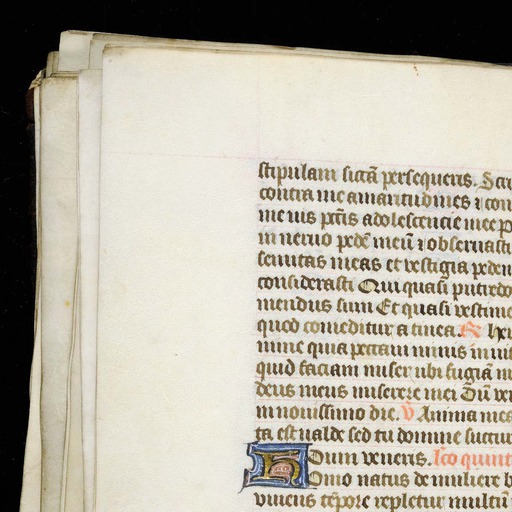 stipulam siccā persequeris. Scri
contra me amaritudines ⁊ con
me uis pctīs adolescentie mee p
in neruo pedē meū ⁊ obseruasti
semitas meas et vestigia pedum
considerasti Qui quasi putredo
mendus sum Et quasi vestime
quod comeditur a tinea. ℟ heu
mine quia peccaui nimis in uit
quid faciam miser ubi fugiā n
deus meus miserere mei Dū ve
in nouissimo die. ℣ Anima mea
ta est ualde sed tu domine succur
Dum veneris. lc̄o quint
Homo natus de muliere b
viuens tēpore repletur multis